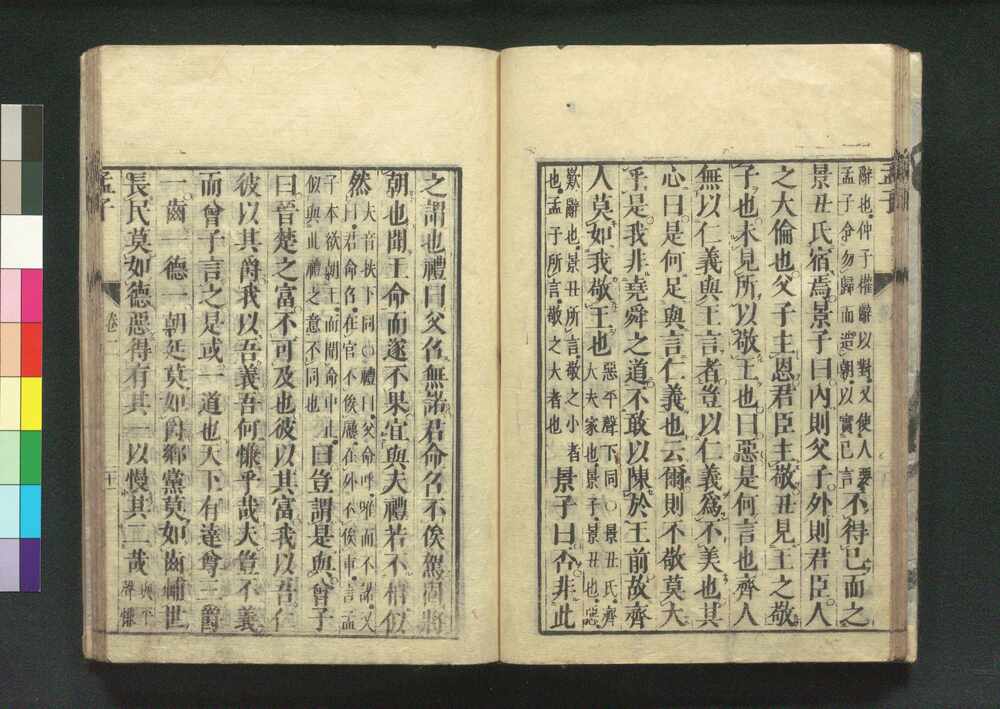 辭也仲子權辭以對又使人要
孟子令勿歸而造朝以實己言
不得已而之
景丑氏宿焉景子曰內則父子外則君臣人
之大倫也父子主恩君臣主敬丑見王之敬
子也未見所以敬王也曰惡是何言也齊人
無以仁義與王言者豈以仁義爲不美也其
心曰是何足與言仁義也云爾則不敬莫大
乎是我非堯舜之道不敢以陳於王前故齊
人莫如我敬王也
惡平聲下同○景丑氏齊
大夫家也景子景丑也惡
歎辭也景丑所言敬之小者
也孟子所言敬之大者也
景子曰否非此
之謂也禮曰父召無諾君命召不俟駕固將
朝也聞王命而遂不果宜與夫禮若不相似
然
夫音扶下同○禮曰父命呼唯而不諾又
曰君命召在官不俟屨在外不俟車言孟
子本欲朝王而聞命中止
似與此禮之意不同也
曰豈謂是與曾子
曰晉楚之富不可及也彼以其富我以吾仁
彼以其爵我以吾義吾何慊乎哉夫豈不義
而曾子言之是或一道也天下有達尊三爵
一齒一德一朝廷莫如爵鄉黨莫如齒輔世
長民莫如德惡得有其一以慢其二哉
與平
聲慊
孟子
卷二
十一
孟子